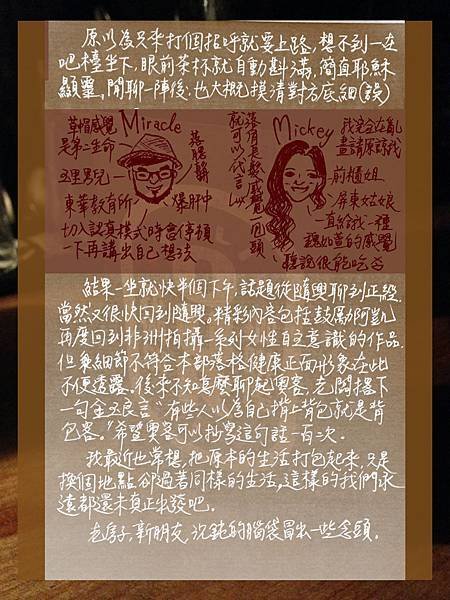 原以為只來打個招呼就要上路,想不到一在
吧檯坐下,眼前茶杯就自動斟滿,簡直耶穌
顯靈。閒聊一陣後也大概摸清對方底細(誤)
Miracle
草帽感覺
是第一生命
五里男兒
東華教有所
切入認真模式時會停頓
一下再講出自己想法
落腮鬍
爆肝中
落落長髮感覺一回頭
就可以代言Lux
Mickey
我完全在亂
畫請原諒我
前櫃姐
屏東姑娘
一直給我一種
魏如萱的感覺
聽說很能吃
結果一坐就快半個下午,話題從隨興聊到正經,
當然又很快回到隨興。精彩內容包括鼓勵阿凱
再度回到非洲拍攝一系列女性自主意識的作品
但兼細節不符合本部落格健康正面形象在此
不便透露。後來不知怎麼聊起奧客,老闆撂下
一句金玉良言“有些人以為自己揹上背包就是背
包客。”希望奧客可以抄寫這句話一百次。
我最近也常想,把原本的生活打包起來,只是
換個地點卻過著同樣的生活,這樣的我們永
遠都還未真正出發吧。
老房子,新朋友,沉鈍的腦袋冒出一些念頭。